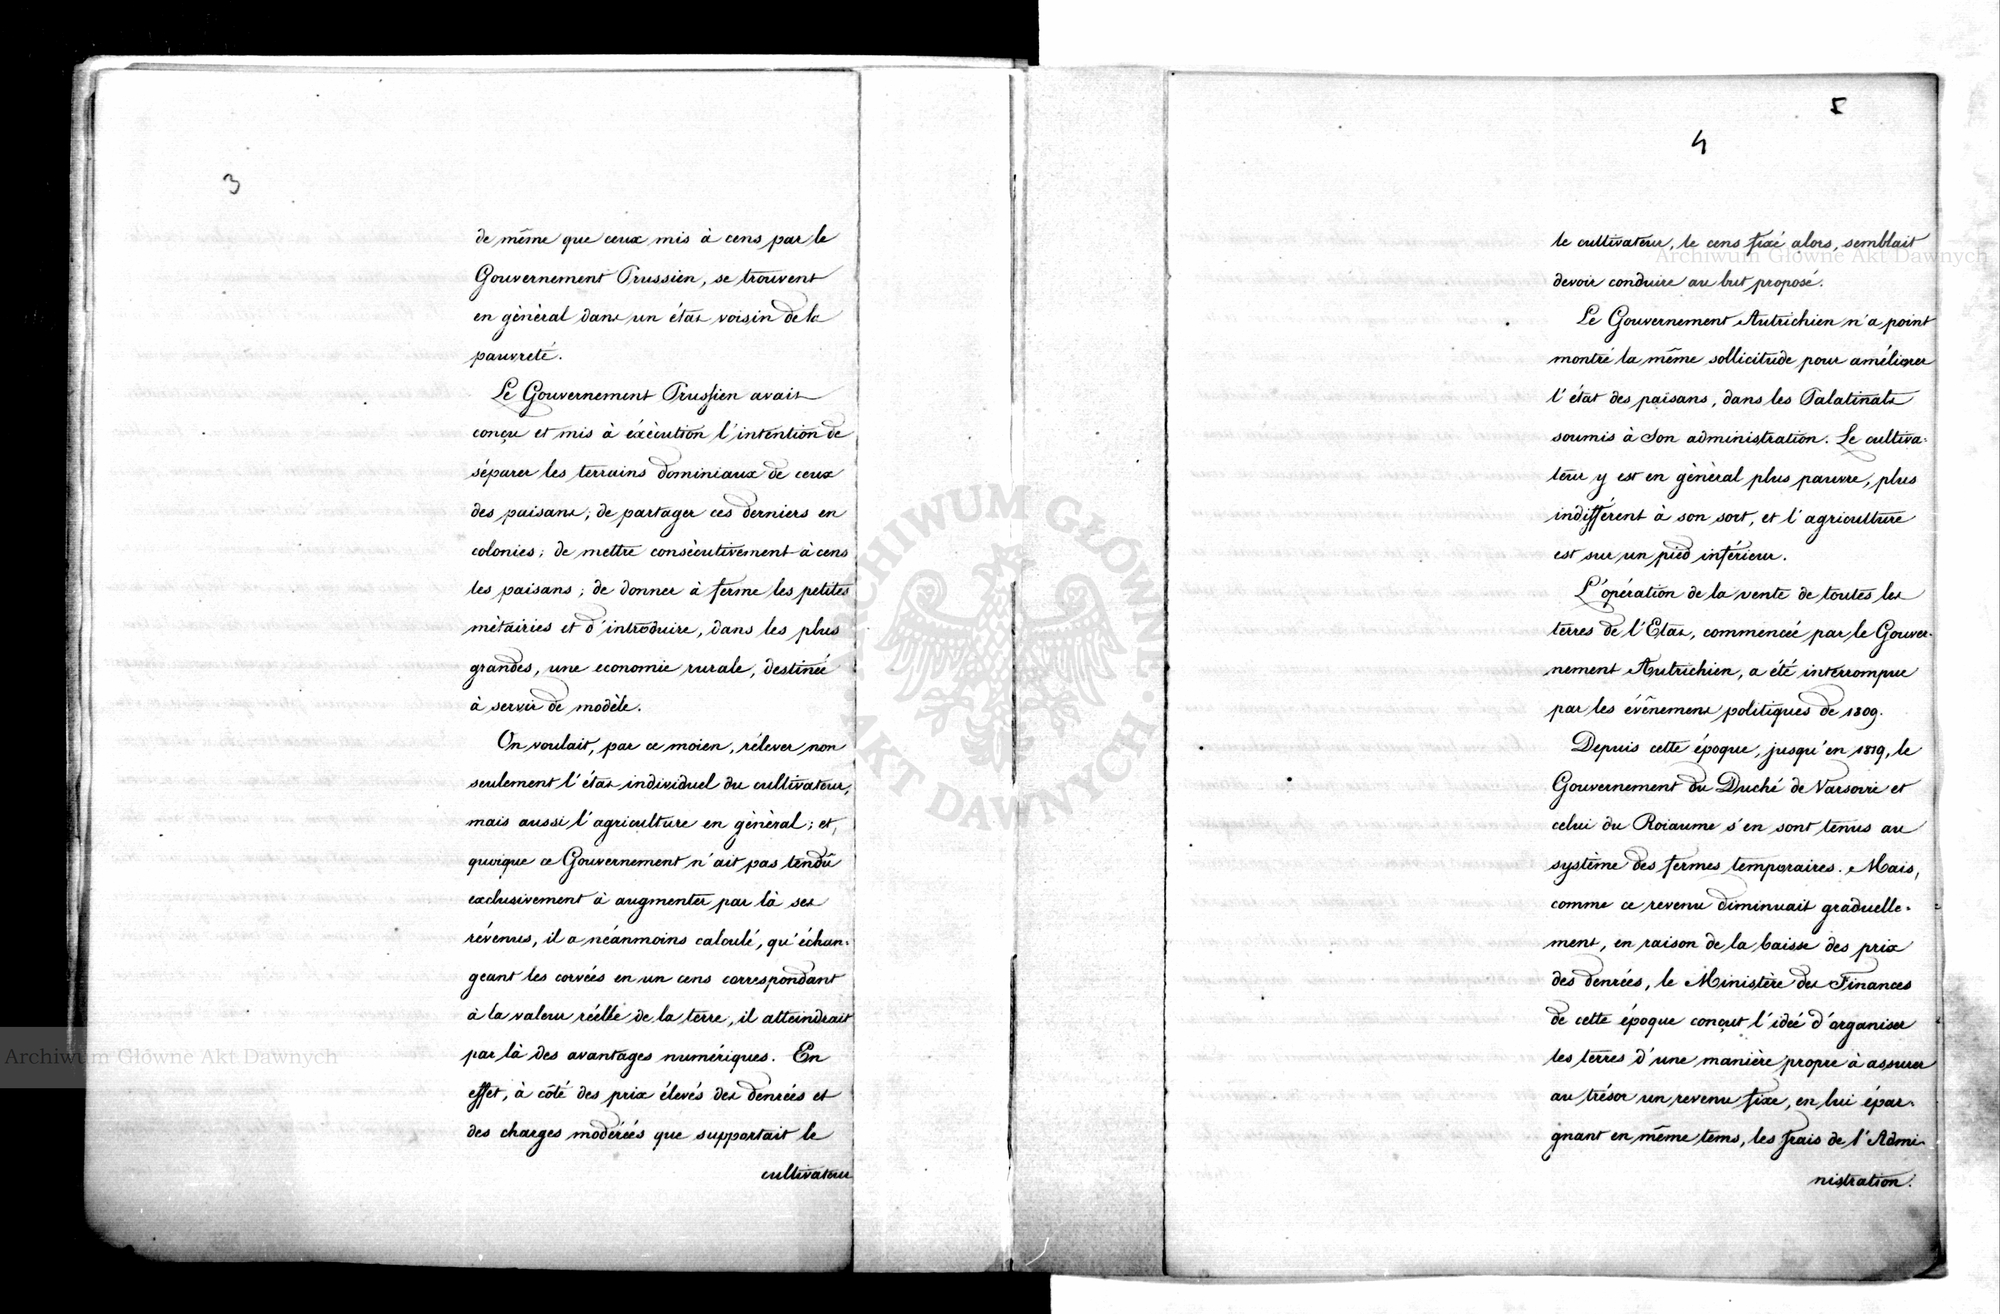 3
de même que ceux mis à cens par le
Gouvernement Prussien, se trouvent
en général dans un état voisin de la
pauvreté.
Le Gouvernement Prussien avait
conçu et mis à éxécution l'intention de
séparer les terrains dominiaux de ceux
des paisans; de partager ces derniers en
colonies; de mettre consécutivement à cens
les paisans; de donner à ferme les petites
métairies et d'introduire, dans les plus
grandes, une economie rurale, destinée
à servir de modèle.
On voulait, par ce moien, rélever non
seulement l'état individuel du cultivateur,
mais aussi l'agriculture en général; et,
quoique ce Gouvernement n'ait pas tendû
exclusivement à augmenter par là ses
révenus, il a néanmoins calculé, qu'échan-
geant les corvées en un cens correspondant
à la valeur réelle de la terre, il atteindrait
par là des avantages numériques. En
effet, à côté des prix élevés des denrées et
des charges modérées que supportait le
cultivateur
5
4
le cultivateur, le cens fixé alors, semblait
devoir conduire au but proposé.
Le Gouvernement Autrichien n'a point
montré la même sollicitude pour améliorer
l'état des paisans, dans les Palatinats
soumis à Son administration. Le cultiva-
teur y est en général plus pauvre, plus
indifférent à son sort, et l'agriculture
est sur un pied inférieur.
L'opération de la vente de toutes les
terres de l'Etat, commencée par le Gouver-
nement Autrichien, a été interrompue
par les événemens politiques de 1809.
Depuis cette époque, jusqu'en 1819, le
Gouvernement du Duché de Varsovie et
celui du Roiaume s'en sont tenus au
système des fermes temporaires. Mais,
comme ce revenu diminuait graduelle-
ment, en raison de la baisse des prix
des denrées, le Ministère des Finances
de cette époque conçut l'idée d'organiser
les terres d'une manière propre à assurer
au trésor un revenu fixe, en lui épar-
gnant en même tems, les frais de l'Admi-
nistration.
Archiwum Główne Akt Dawnych
Archiwum Główne Akt Dawnych
ARCHIWUM GŁÓWNE · AKT DAWNYCH ·